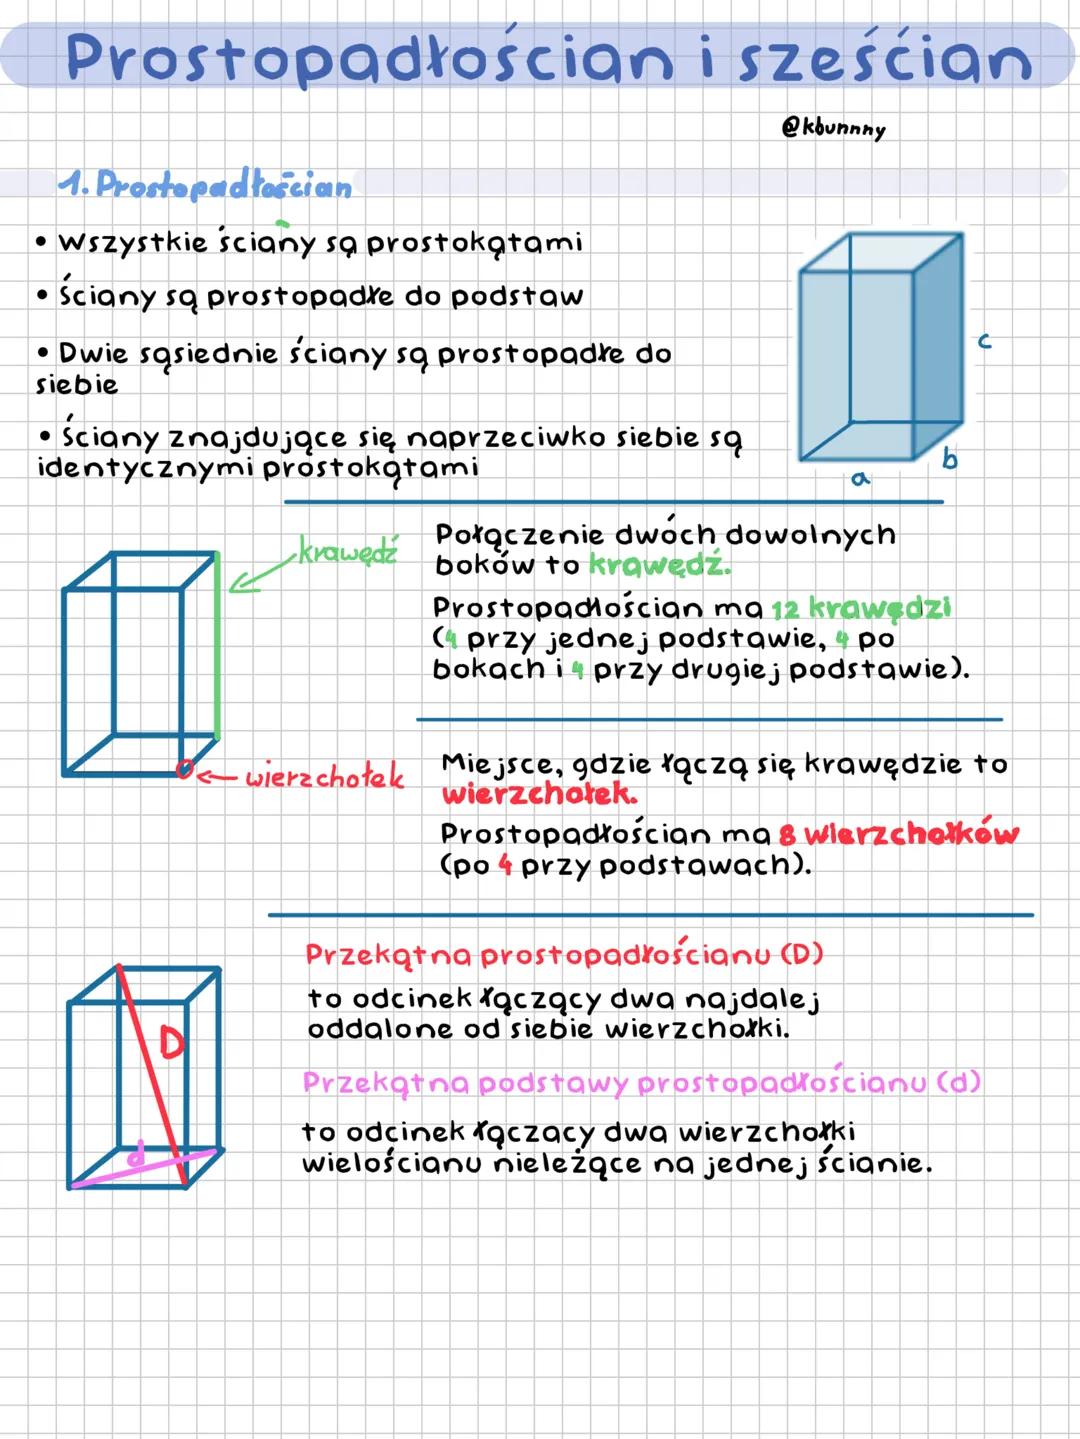 Prostopadłościan i sześcian
@kbunnny
1. Prostopadłościan
• Wszystkie ściany są prostokątami
• Ściany są prostopadłe do podstaw
• Dwie sąsiednie ściany są prostopadłe do
siebie
• Ściany znajdujące się naprzeciwko siebie są
identycznymi prostokątami
c
b
a
krawędź
Połączenie dwóch dowolnych
boków to krawędź.
Prostopadłościan ma 12 krawędzi
(4 przy jednej podstawie, 4 po
bokach i 4 przy drugiej podstawie).
wierzchołek
Miejsce, gdzie łączą się krawędzie to
wierzchołek.
Prostopadłościan ma 8 wierzchołków
(po 4 przy podstawach).
D
d
Przekątna prostopadłościanu (D)
to odcinek łączący dwa najdalej
oddalone od siebie wierzchołki.
Przekątna podstawy prostopadłościanu (d)
to odcinek łączący dwa wierzchołki
wielościanu nieleżące na jednej ścianie.